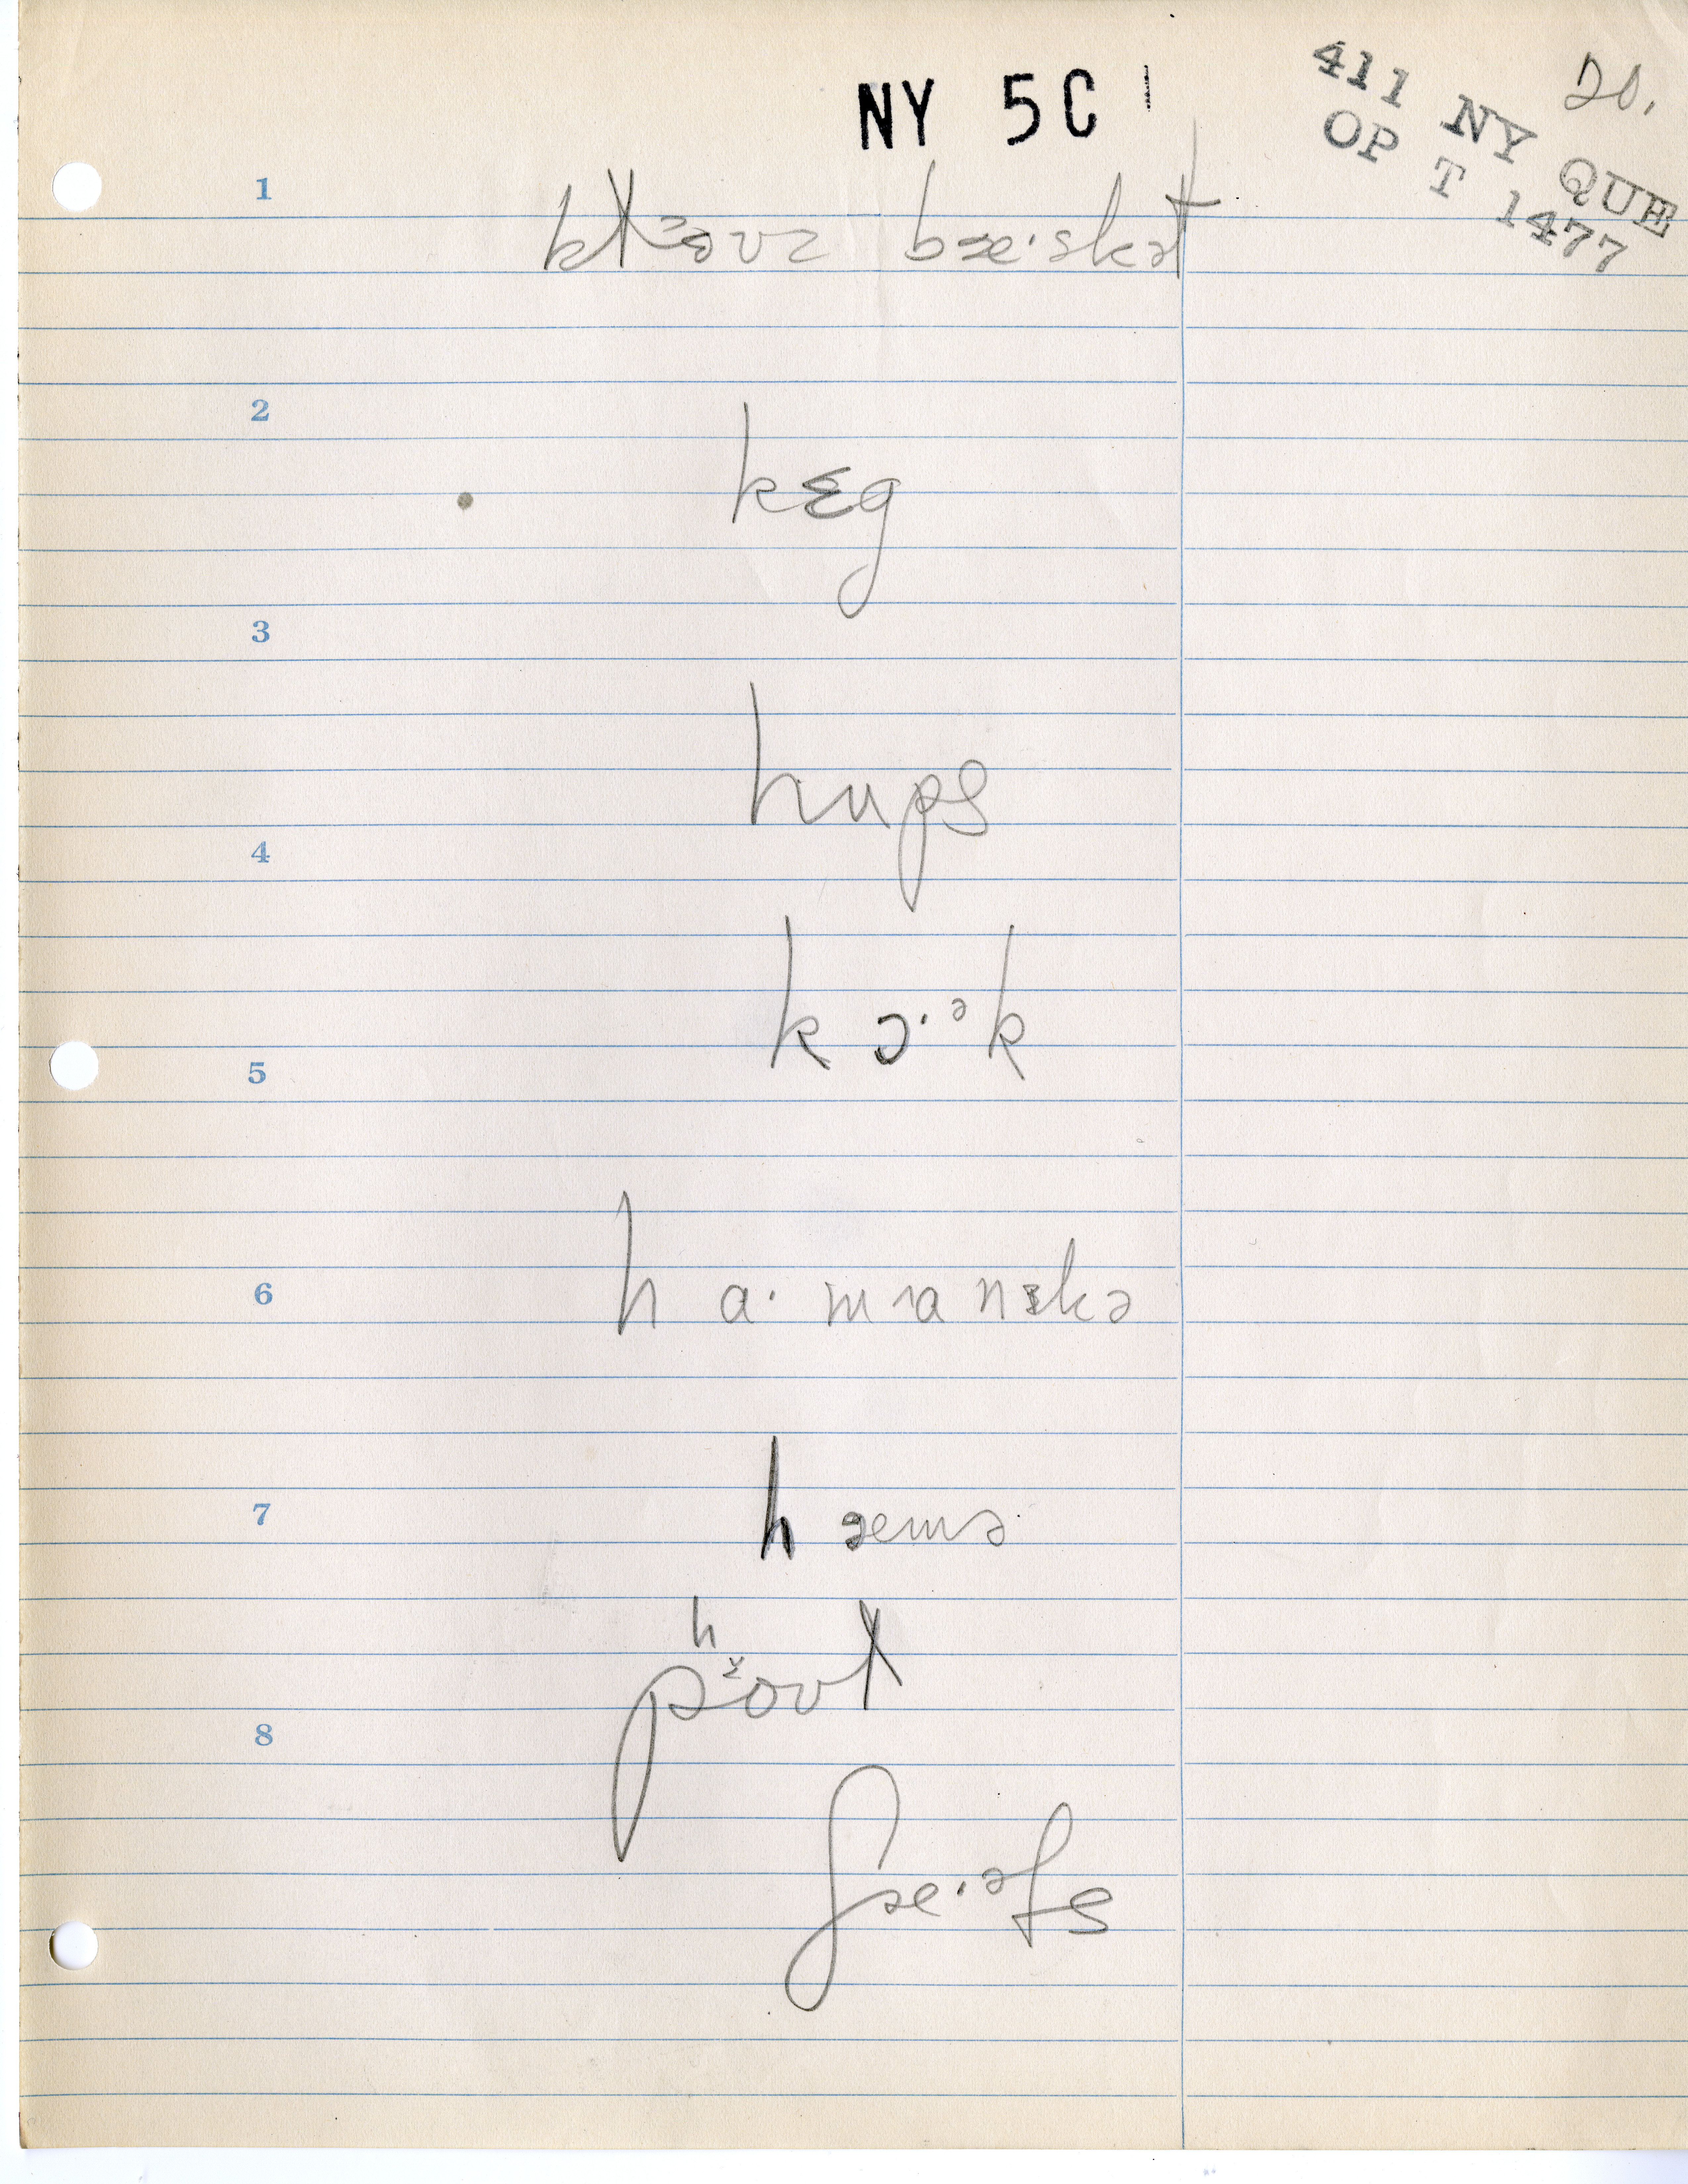 NY 5C
20.
411 NY QUE
OP T 1477
1
bæ·skət
2
kɛg
3
hups
4
kɔ·ᵊk
5
6
ha·mɑnɪkə
7
hæmə
h
8
ʃæ·ᵊfs